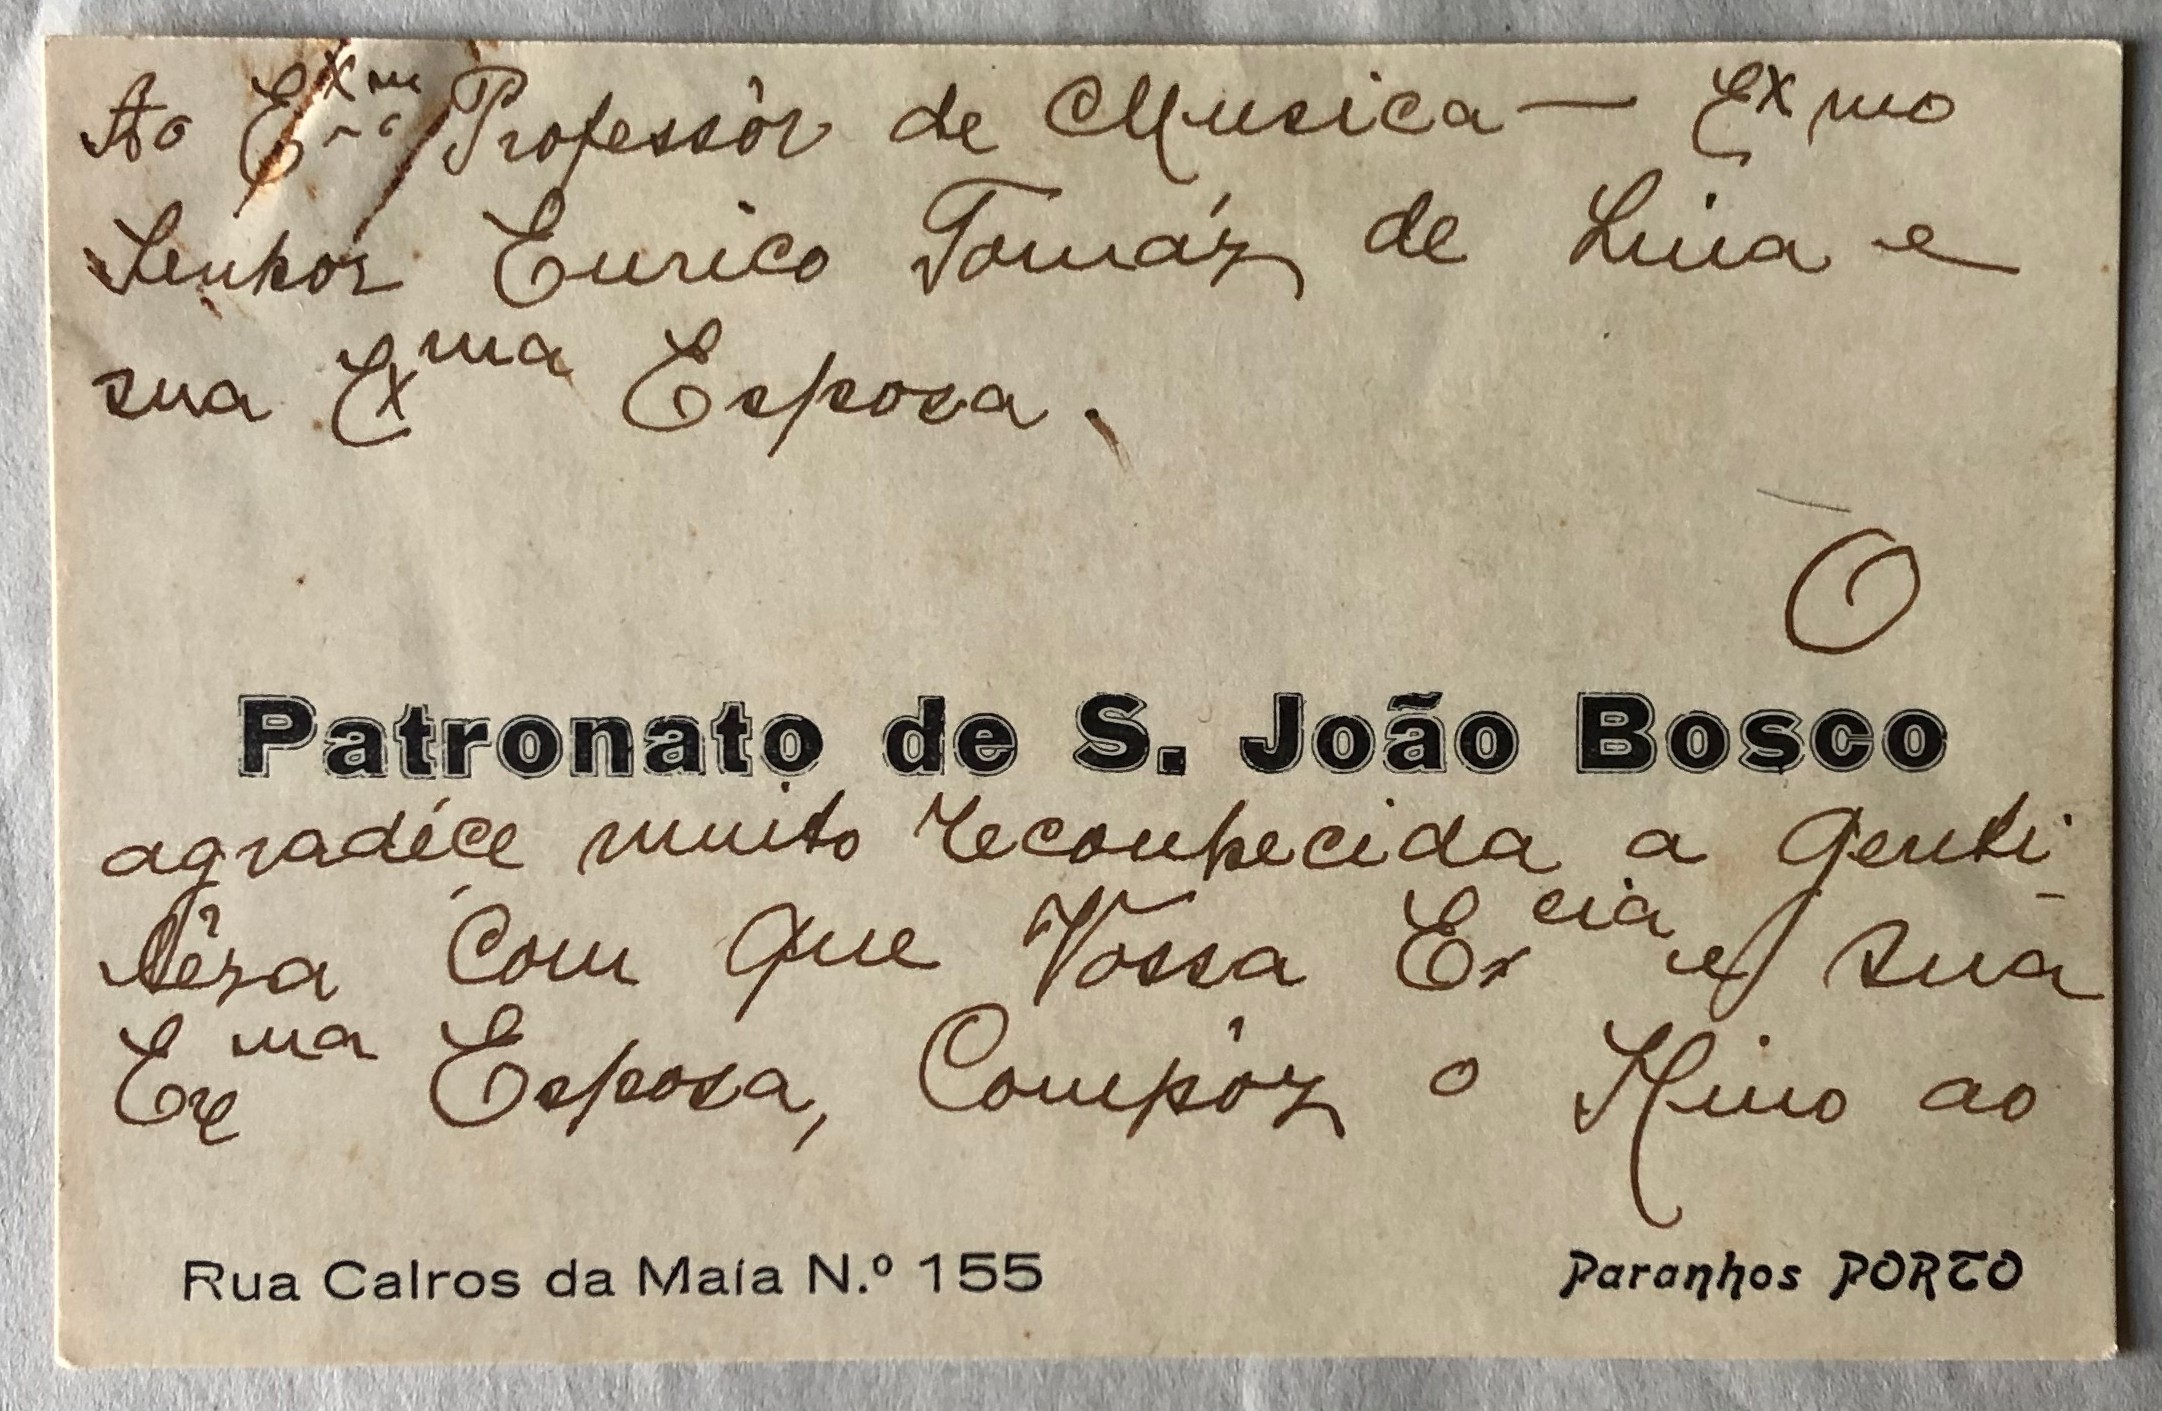 Ao Exmo Professôr de Musica — Exmo
Senhor Eurico Tomáz de Lima e
sua Exma Esposa.
O
Patronato de S. João Bosco
agradéce muito reconhecida a genti-
lêsa com que Vossa Excia e sua
Exma Esposa, compôz o Hino ao
Rua Calros da Maía N.º 155
Paranhos PORTO